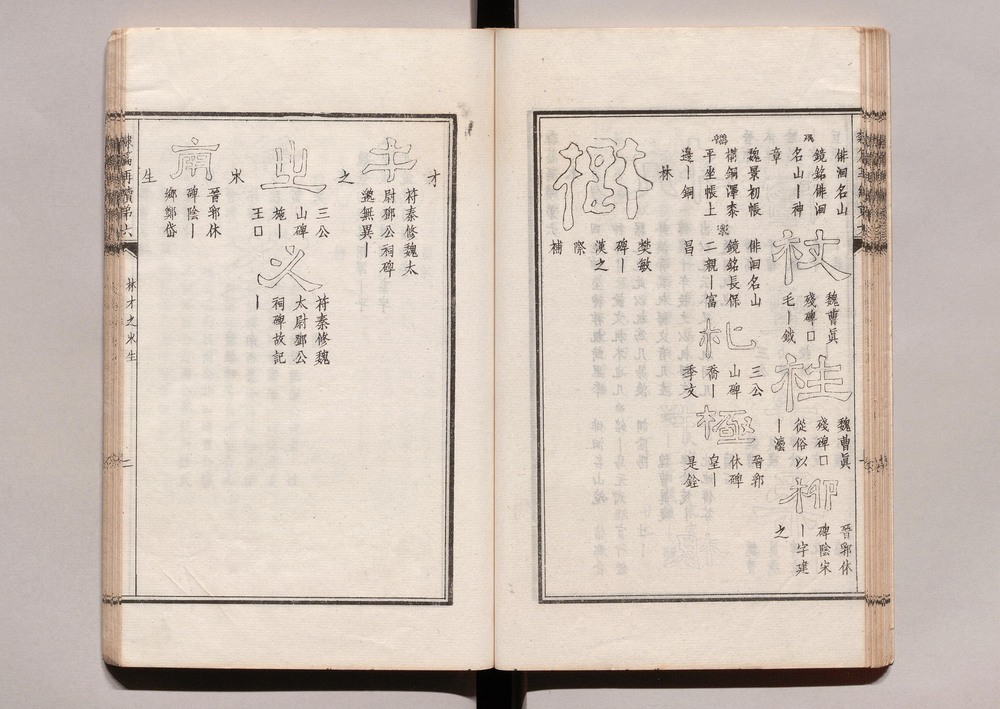 俳洄名山
鏡銘俳洄
名山丨神
章
杖
魏曹眞
殘碑囗
毛丨鉞
柱
魏曹眞
殘碑囗
從俗以
丨濫
柳
晉郛休
碑陰宋
丨字建
之
魏景初帳
構銅澤黍
平坐帳上
邊丨銅
俳洄名山
鏡銘長保
二親丨富
昌
札
三公
山碑
喬丨
季文
極
晉郛
休碑
皇丨
是銓
林
樊敏
碑丨
漢之
際
補
才
苻秦修魏太
尉鄧公祠碑
邈無異丨
之
三公
山碑
施丨
王囗
苻秦修魏
太尉鄧公
祠碑故記
丨
宋
南
晉郛休
碑陰丨
鄉鄭岱
生
林才之宋生